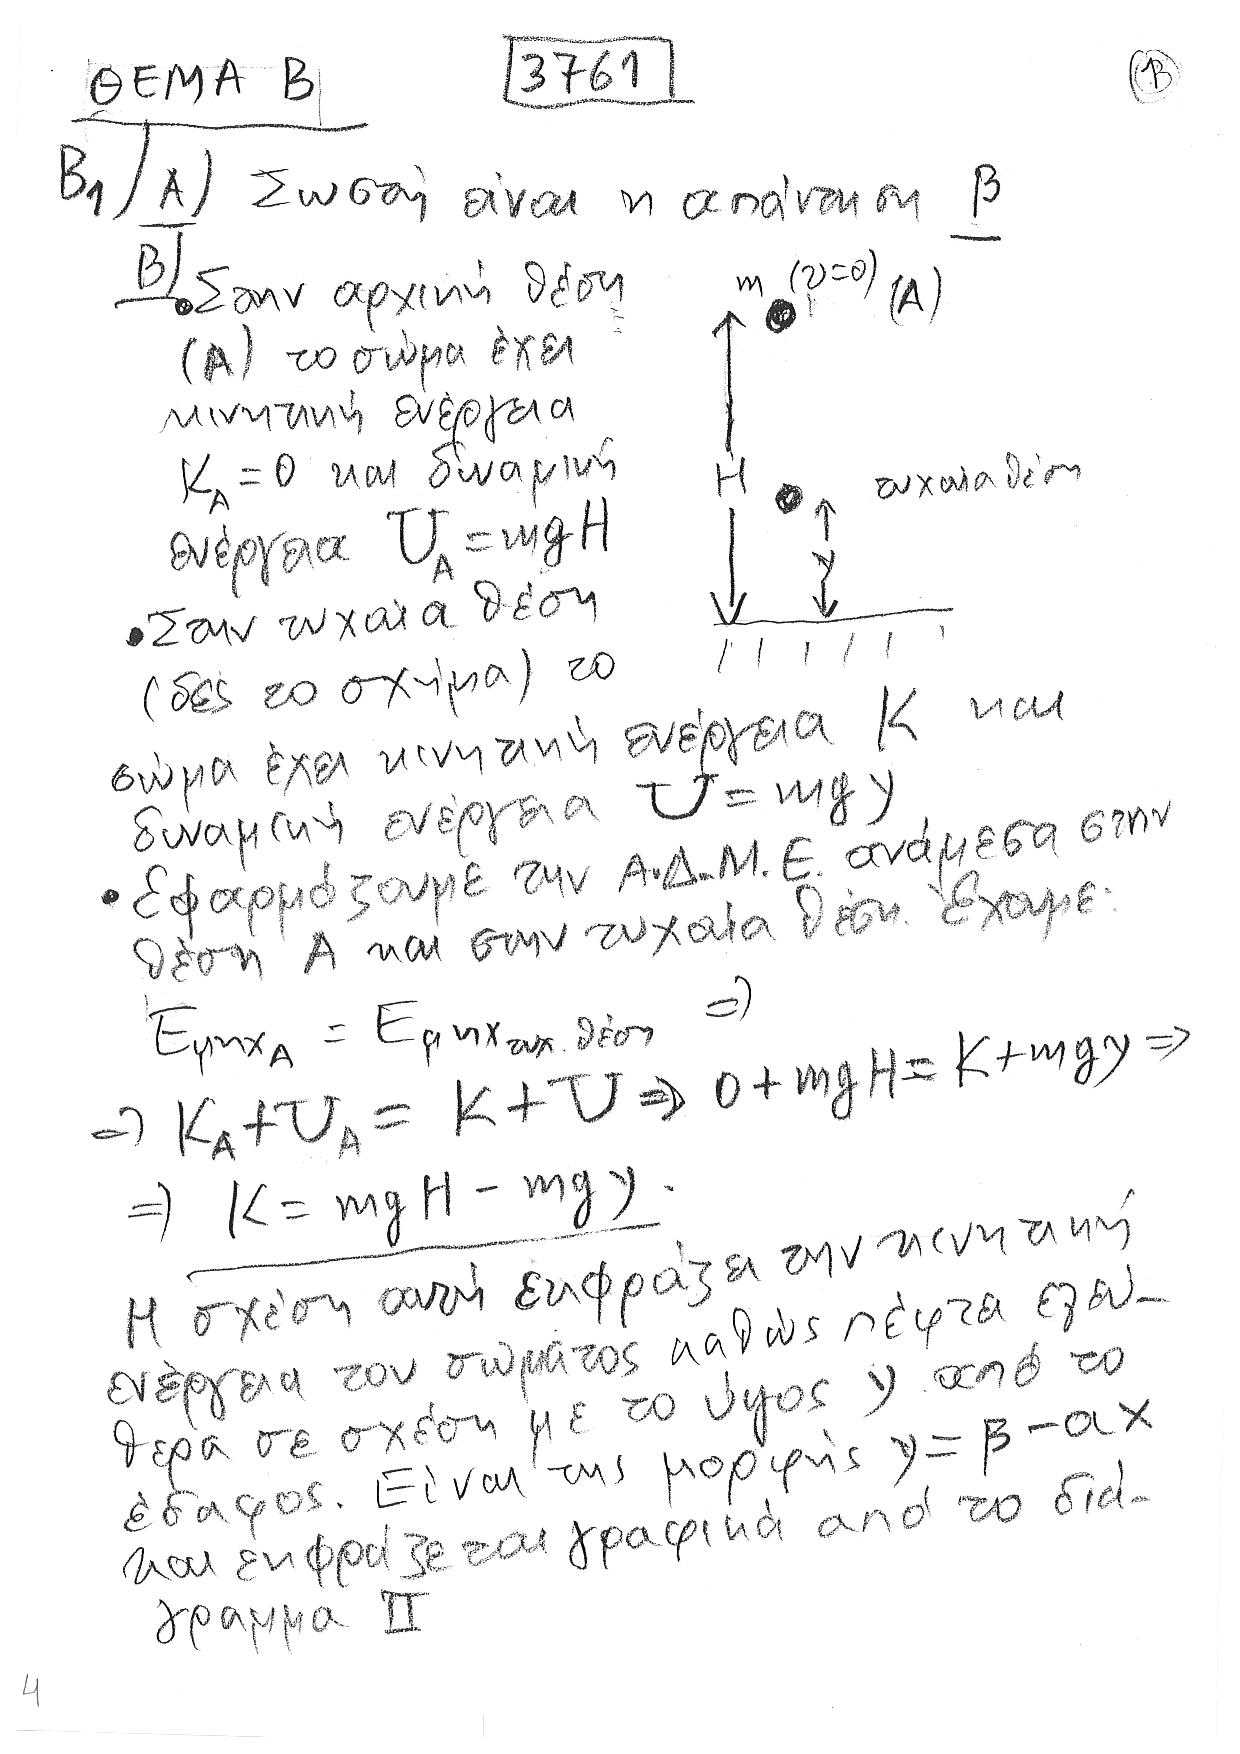 ΘΕΜΑ Β
3761
B
Β1) Α) Σωστή είναι η απάντηση β
Β)
• Στην αρχική θέση
(Α) το σώμα έχει
κινητική ενέργεια
K_A = 0 και δυναμική
ενέργεια U_A = mgH
• Στην τυχαία θέση
(δες το σχήμα) το
m (υ=0) (Α)
H
τυχαία θέση
y
σώμα έχει κινητική ενέργεια K και
δυναμική ενέργεια U = mgy
• Εφαρμόζουμε την Α.Δ.Μ.Ε. ανάμεσα στην
θέση Α και στην τυχαία θέση. Έχουμε:
Εμηχ_Α = Εμηχ_τυχ. θέση ⇒
⇒ K_A + U_A = K + U ⇒ 0 + mgH = K + mgy ⇒
⇒ K = mgH - mgy.
Η σχέση αυτή εκφράζει την κινητική
ενέργεια του σώματος καθώς πέφτει ελεύ-
θερα σε σχέση με το ύψος y από το
έδαφος. Είναι της μορφής y = β - αx
και εκφράζεται γραφικά από το διά-
γραμμα ΙΙ
4